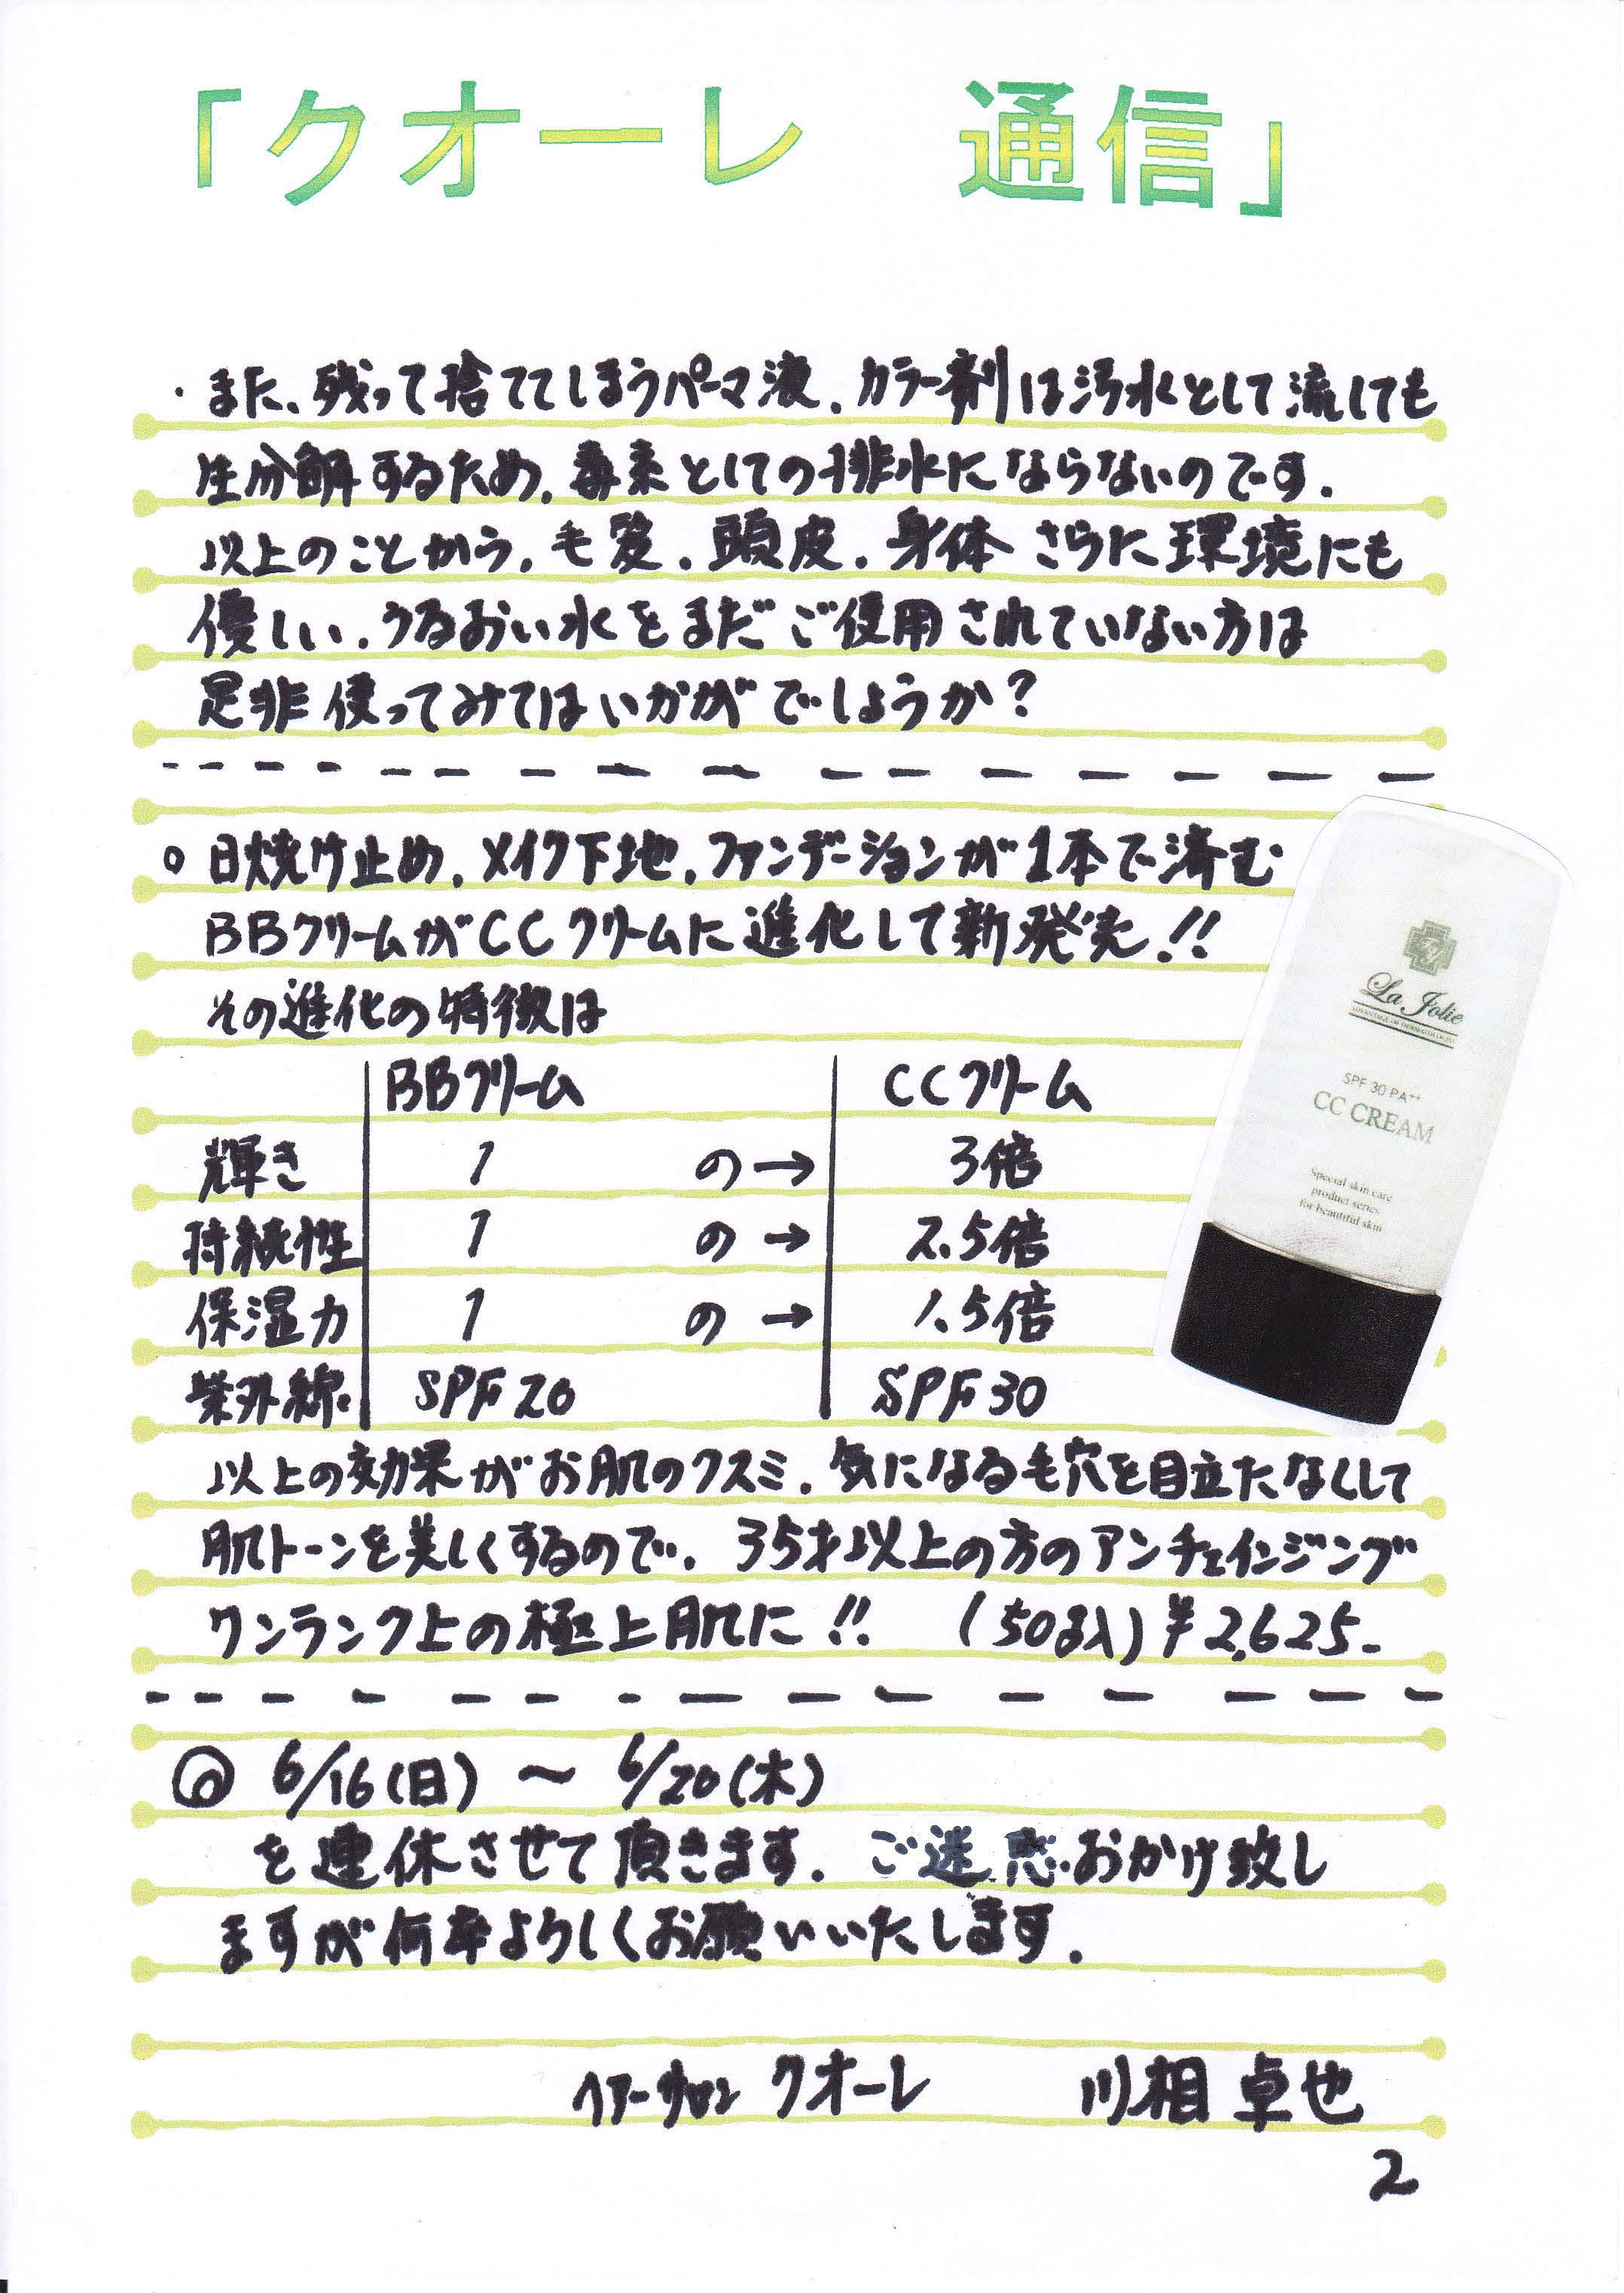 「クオーレ　通信」
・また、残って捨ててしまうパーマ液、カラー剤は汚水として流しても
生分解するため、毒素としての排水にならないのです。
以上のことから、毛髪、頭皮、身体 さらに環境にも
優しい、うるおい水をまだご使用されていない方は
是非使ってみてはいかがでしょうか？
○ 日焼け止め、メイク下地、ファンデーションが1本で済む
BBクリームがCCクリームに進化して新発売!!
その進化の特徴は
BBクリーム CCクリーム
輝き 1 の→ 3倍
持続性 1 の→ 2.5倍
保湿力 1 の→ 1.5倍
紫外線 SPF20 SPF30
La Jolie
ADVANTAGE OF DERMATOLOGIST
SPF 30 PA++
CC CREAM
Special skin care
product series
for beautiful skin
以上の効果がお肌のクスミ、気になる毛穴を目立たなくして
肌トーンを美しくするので、35才以上の方のアンチェインジング
ワンランク上の極上肌に!! (50g入) ¥2,625-
◎ 6/16(日) 〜 6/20(木)
を連休させて頂きます。ご迷惑おかけ致し
ますが何卒よろしくお願いいたします。
ヘアーサロン クオーレ 川相 卓也
2